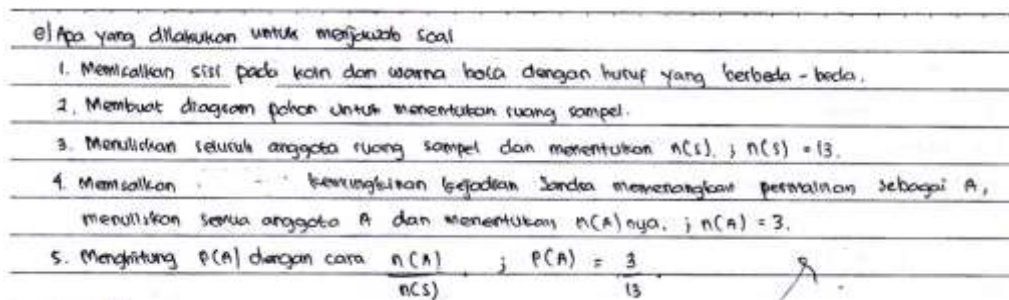 e) Apa yang dilakukan untuk menjawab soal
1. Memisalkan sisi pada koin dan warna bola dengan huruf yang berbeda-beda.
2. Membuat diagram pohon untuk menentukan ruang sampel.
3. Menuliskan seluruh anggota ruang sampel dan menentukan n(S). ; n(S) = 13.
4. Memisalkan kemungkinan kejadian Sandra memenangkan permainan sebagai A,
menuliskan semua anggota A dan menentukan n(A) nya. ; n(A) = 3.
5. Menghitung P(A) dengan cara n(A) ; P(A) = 3
n(S) 13